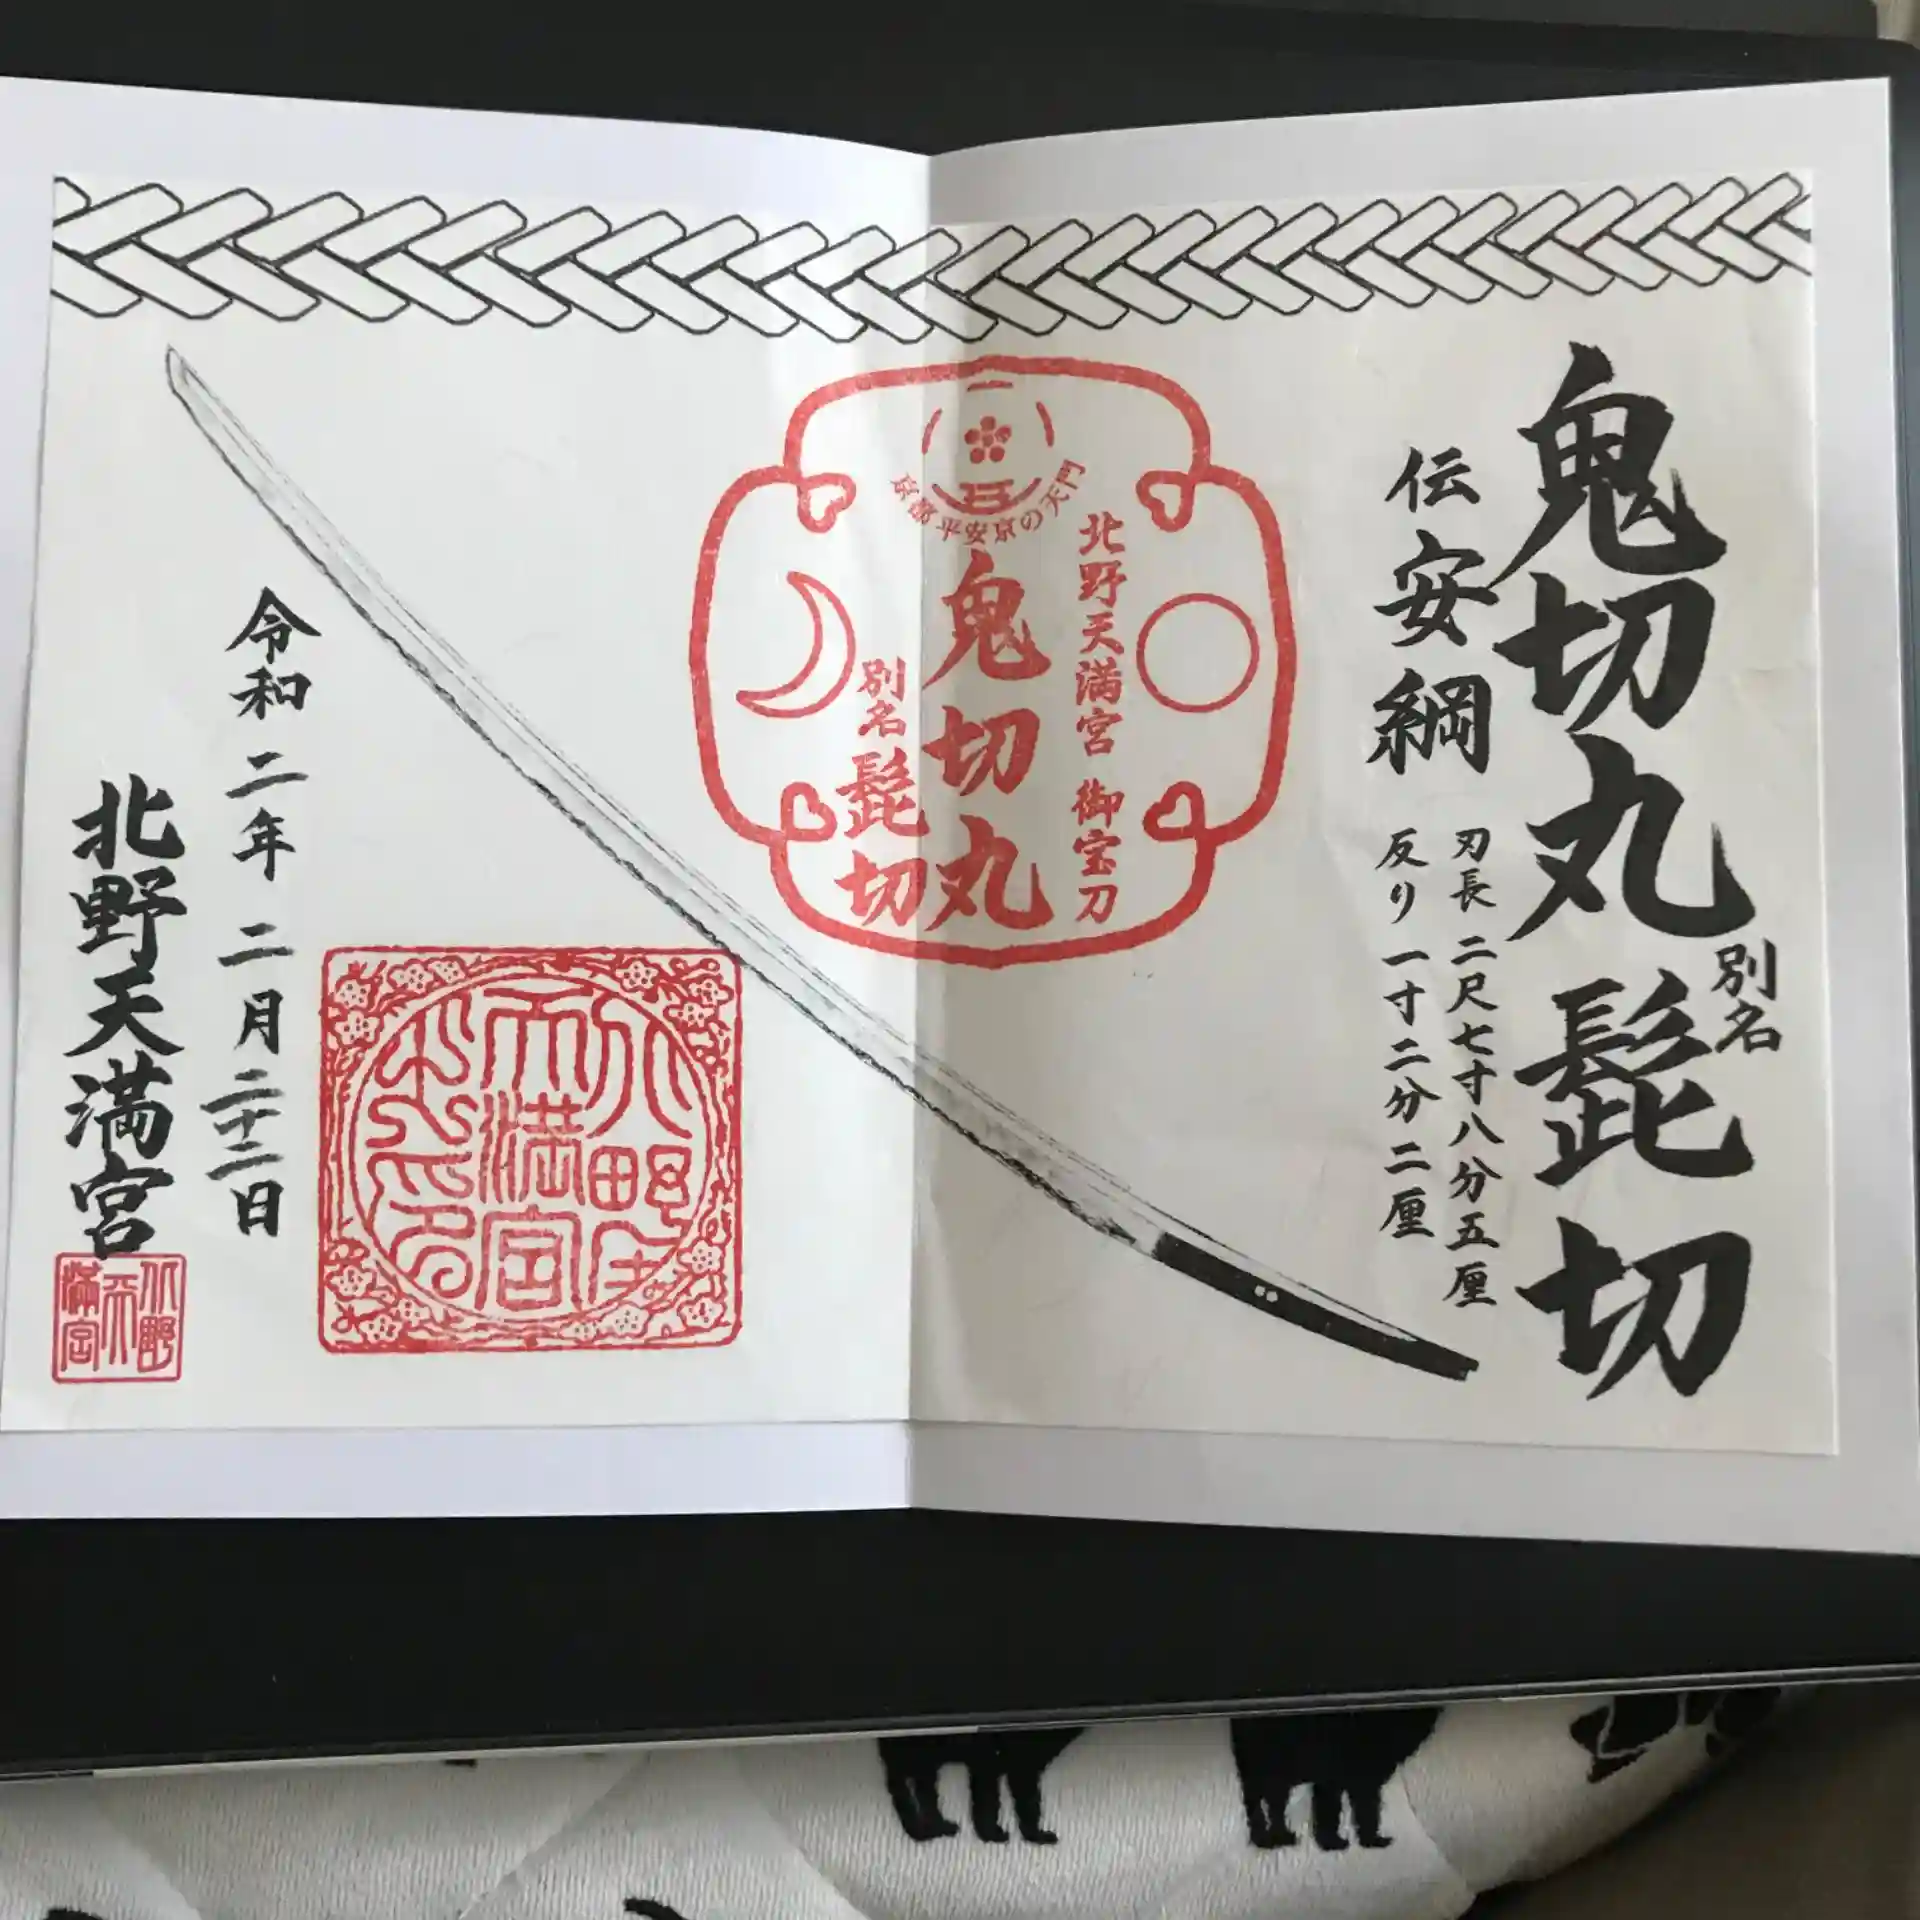 鬼切丸
別名
髭切
伝安綱
刃長 二尺七寸八分五厘
反り 一寸二分二厘
京都 平安京の天門
北野天満宮 御宝刀
鬼切丸
別名 髭切
令和二年二月二十二日
北野天満宮